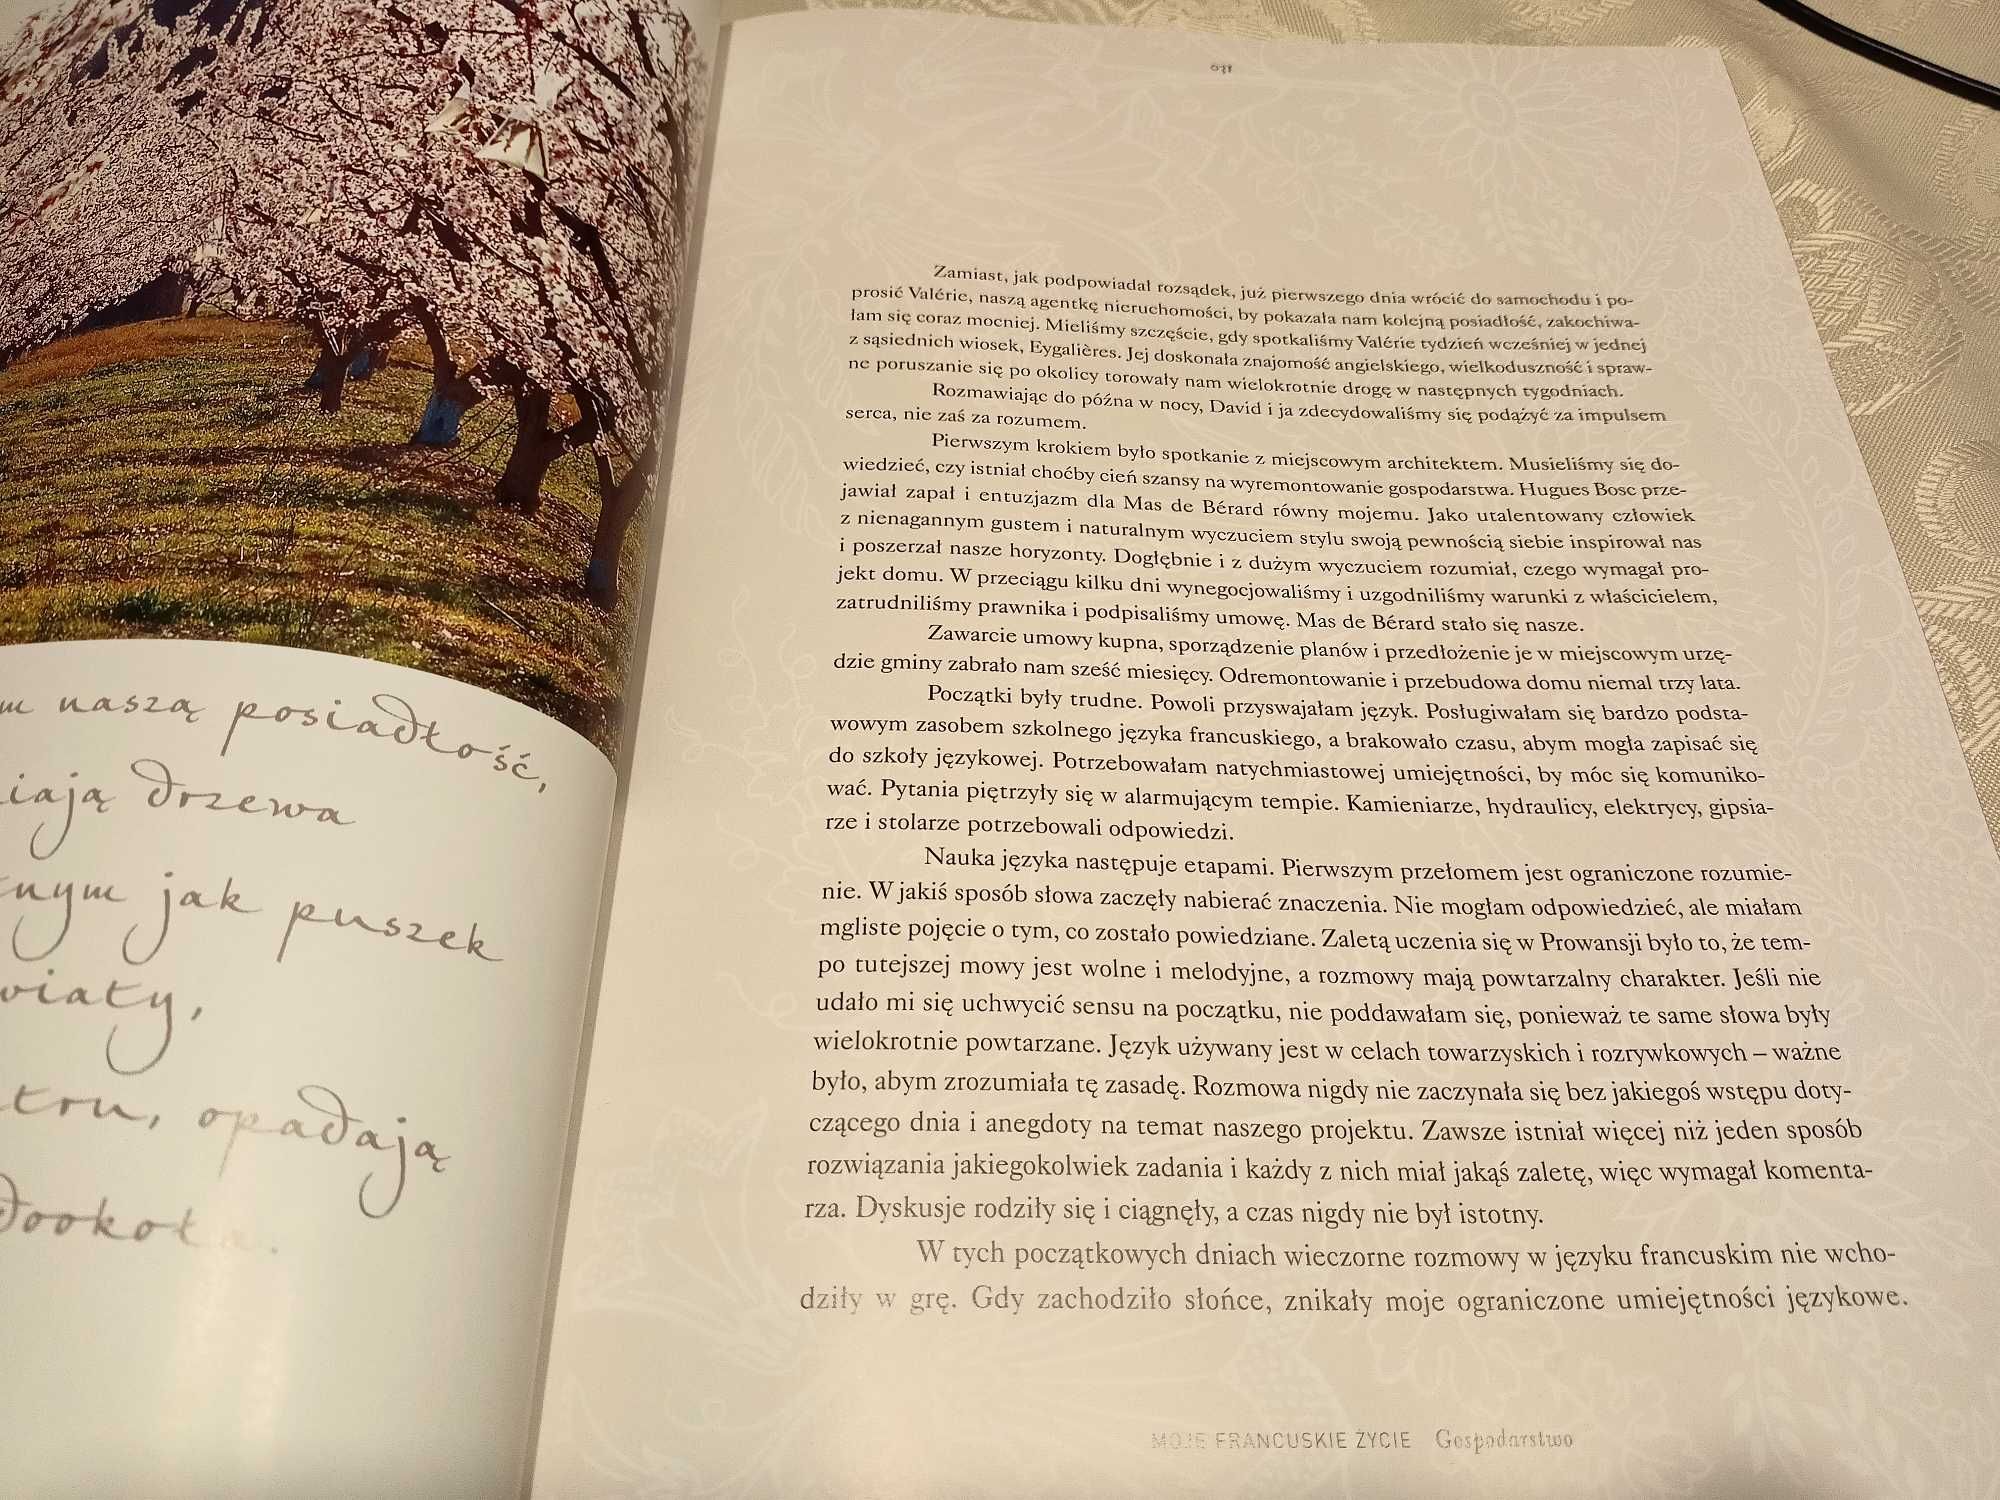 naszą posiadłość,
drzewa
jak puszek
opadają
Zamiast, jak podpowiadał rozsądek, już pierwszego dnia wrócić do samochodu i po-
prosić Valérie, naszą agentkę nieruchomości, by pokazała nam kolejną posiadłość, zakochiwa-
łam się coraz mocniej. Mieliśmy szczęście, gdy spotkaliśmy Valérie tydzień wcześniej w jednej
z sąsiednich wiosek, Eygalières. Jej doskonała znajomość angielskiego, wielkoduszność i spraw-
ne poruszanie się po okolicy torowały nam wielokrotnie drogę w następnych tygodniach.
Rozmawiając do późna w nocy, David i ja zdecydowaliśmy się podążyć za impulsem
serca, nie zaś za rozumem.
Pierwszym krokiem było spotkanie z miejscowym architektem. Musieliśmy się do-
wiedzieć, czy istniał choćby cień szansy na wyremontowanie gospodarstwa. Hugues Bosc prze-
jawiał zapał i entuzjazm dla Mas de Bérard równy mojemu. Jako utalentowany człowiek
z nienagannym gustem i naturalnym wyczuciem stylu swoją pewnością siebie inspirował nas
i poszerzał nasze horyzonty. Dogłębnie i z dużym wyczuciem rozumiał, czego wymagał pro-
jekt domu. W przeciągu kilku dni wynegocjowaliśmy i uzgodniliśmy warunki z właścicielem,
zatrudniliśmy prawnika i podpisaliśmy umowę. Mas de Bérard stało się nasze.
Zawarcie umowy kupna, sporządzenie planów i przedłożenie je w miejscowym urzę-
dzie gminy zabrało nam sześć miesięcy. Odremontowanie i przebudowa domu niemal trzy lata.
Początki były trudne. Powoli przyswajałam język. Posługiwałam się bardzo podsta-
wowym zasobem szkolnego języka francuskiego, a brakowało czasu, abym mogła zapisać się
do szkoły językowej. Potrzebowałam natychmiastowej umiejętności, by móc się komuniko-
wać. Pytania piętrzyły się w alarmującym tempie. Kamieniarze, hydraulicy, elektrycy, gipsia-
rze i stolarze potrzebowali odpowiedzi.
Nauka języka następuje etapami. Pierwszym przełomem jest ograniczone rozumie-
nie. W jakiś sposób słowa zaczęły nabierać znaczenia. Nie mogłam odpowiedzieć, ale miałam
mgliste pojęcie o tym, co zostało powiedziane. Zaletą uczenia się w Prowansji było to, że tem-
po tutejszej mowy jest wolne i melodyjne, a rozmowy mają powtarzalny charakter. Jeśli nie
udało mi się uchwycić sensu na początku, nie poddawałam się, ponieważ te same słowa były
wielokrotnie powtarzane. Język używany jest w celach towarzyskich i rozrywkowych – ważne
było, abym zrozumiała tę zasadę. Rozmowa nigdy nie zaczynała się bez jakiegoś wstępu doty-
czącego dnia i anegdoty na temat naszego projektu. Zawsze istniał więcej niż jeden sposób
rozwiązania jakiegokolwiek zadania i każdy z nich miał jakąś zaletę, więc wymagał komenta-
rza. Dyskusje rodziły się i ciągnęły, a czas nigdy nie był istotny.
W tych początkowych dniach wieczorne rozmowy w języku francuskim nie wcho-
dziły w grę. Gdy zachodziło słońce, znikały moje ograniczone umiejętności językowe.
MOJE FRANCUSKIE ŻYCIE Gospodarstwo